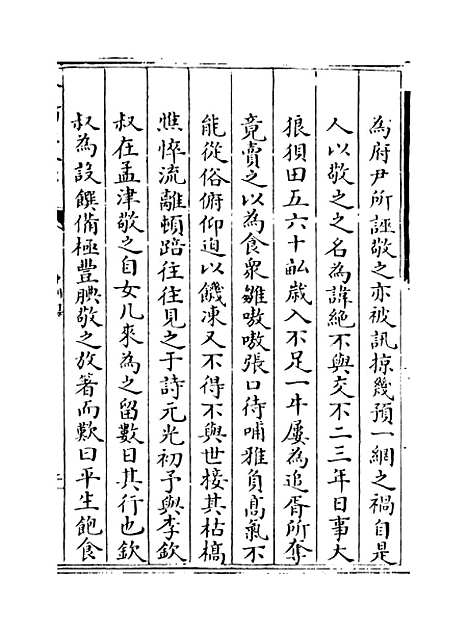 為府尹所誣敬之亦被訊掠幾預一網之禍自是
人以敬之之名為諱絶不與交不二三年日事大
狼狽田五六十畆歳入不足一牛屢為追胥所奪
竟賣之以為食衆雛嗷嗷張口待哺雅負髙氣不
能從俗俯仰迫以饑凍又不得不與世接其枯槁
憔悴流離頓踣往往見之于詩元光初予與李欽
叔在孟津敬之自女几來為之留數日其行也欽
叔為設饌備極豐腆敬之放箸而歎曰平生飽食